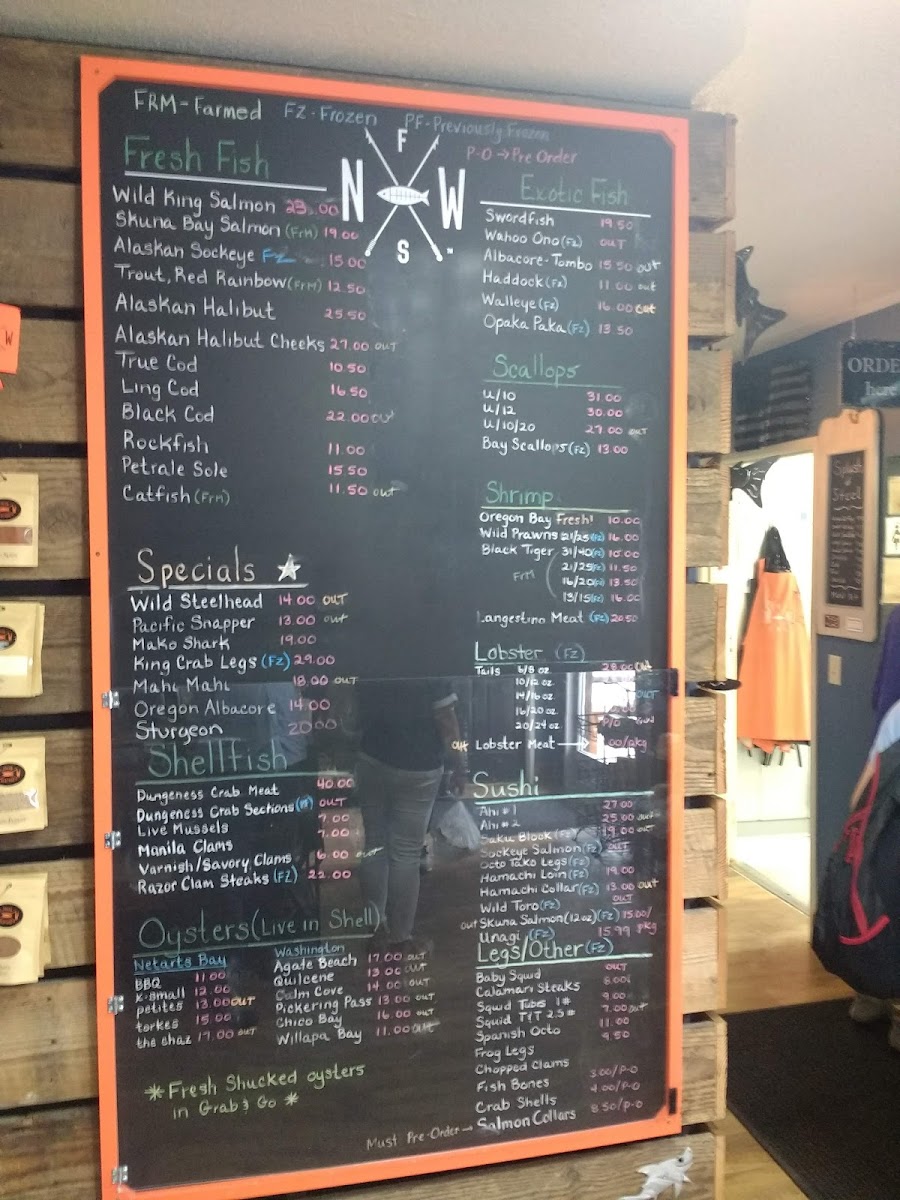 FRM-Farmed FZ-Frozen PF-Previously Frozen
P-O → Pre Order
N F W S
Fresh Fish
Wild King Salmon 23.00
Skuna Bay Salmon (FrM) 19.00
Alaskan Sockeye FZ 15.00
Trout, Red Rainbow (FrM) 12.50
Alaskan Halibut 25.50
Alaskan Halibut Cheeks 27.00 out
True Cod 10.50
Ling Cod 16.50
Black Cod 22.00 out
Rockfish 11.00
Petrale Sole 15.50
Catfish (Frm) 11.50 out
Specials
Wild Steelhead 14.00 OUT
Pacific Snapper 13.00 out
Mako Shark 19.00
King Crab Legs (FZ) 29.00
Mahi Mahi 18.00 OUT
Oregon Albacore 14.00
Sturgeon 20.00
Shellfish
Dungeness Crab Meat 40.00
Dungeness Crab Sections OUT
Live Mussels 7.00
Manila Clams 7.00
Varnish/Savory Clams 6.00 out
Razor Clam Steaks (FZ) 22.00
Oysters (Live in Shell)
Netarts Bay
BBQ 11.00
x-small 12.00
petites 13.00 OUT
torkes 15.00
the chaz 17.00 OUT
Washington
Agate Beach 17.00 OUT
Quilcene 13.00 OUT
Calm Cove 14.00 OUT
Pickering Pass 13.00 OUT
Chico Bay 16.00 OUT
Willapa Bay 11.00 OUT
*Fresh Shucked oysters
in Grab & Go *
Exotic Fish
Swordfish 19.50
Wahoo Ono (Fz) OUT
Albacore-Tombo 15.50 out
Haddock (Fz) 11.00 out
Walleye (Fz) 16.00 out
Opaka Paka (Fz) 13.50
Scallops
U/10 31.00
U/12 30.00
U/10/20 27.00 OUT
Bay Scallops (Fz) 13.00
Shrimp
Oregon Bay Fresh! 10.00
Wild Prawns 21/25 (Fz) 16.00
Black Tiger 31/40 (Fz) 10.00
FrM
21/25 (Fz) 11.50
16/20 (Fz) 13.50
13/15 (Fz) 16.00
Langostino Meat (Fz) 20.50
Lobster (Fz)
Tails 6/8 oz 28.00 Out
10/12 oz
14/16 oz OUT
16/20 oz
20/24 oz P/O
out Lobster Meat → .00/pkg
Sushi
Ahi #1 27.00
Ahi #2 25.00 out
Saku Block (Fz) 19.00 out
Sockeye Salmon (Fz) OUT
Octo Tako Legs (Fz)
Hamachi Loin (Fz) 19.00
Hamachi Collar (Fz) 13.00 out
Wild Toro (Fz) OUT
out Skuna Salmon (12oz) (Fz) 15.00/
Unagi (FZ) 15.99 pkg
Legs/Other (FZ)
Baby Squid OUT
Calamari Steaks 8.00
Squid Tubes 1# 9.00
Squid T/T 2.5# 7.00 out
Spanish Octo 11.00
Frog Legs 9.50
Chopped Clams
Fish Bones 3.00/P-O
Crab Shells 4.00/P-O
Must Pre-Order → Salmon Collars 8.50/P-O
ORDER
here
Splash
of
Steel